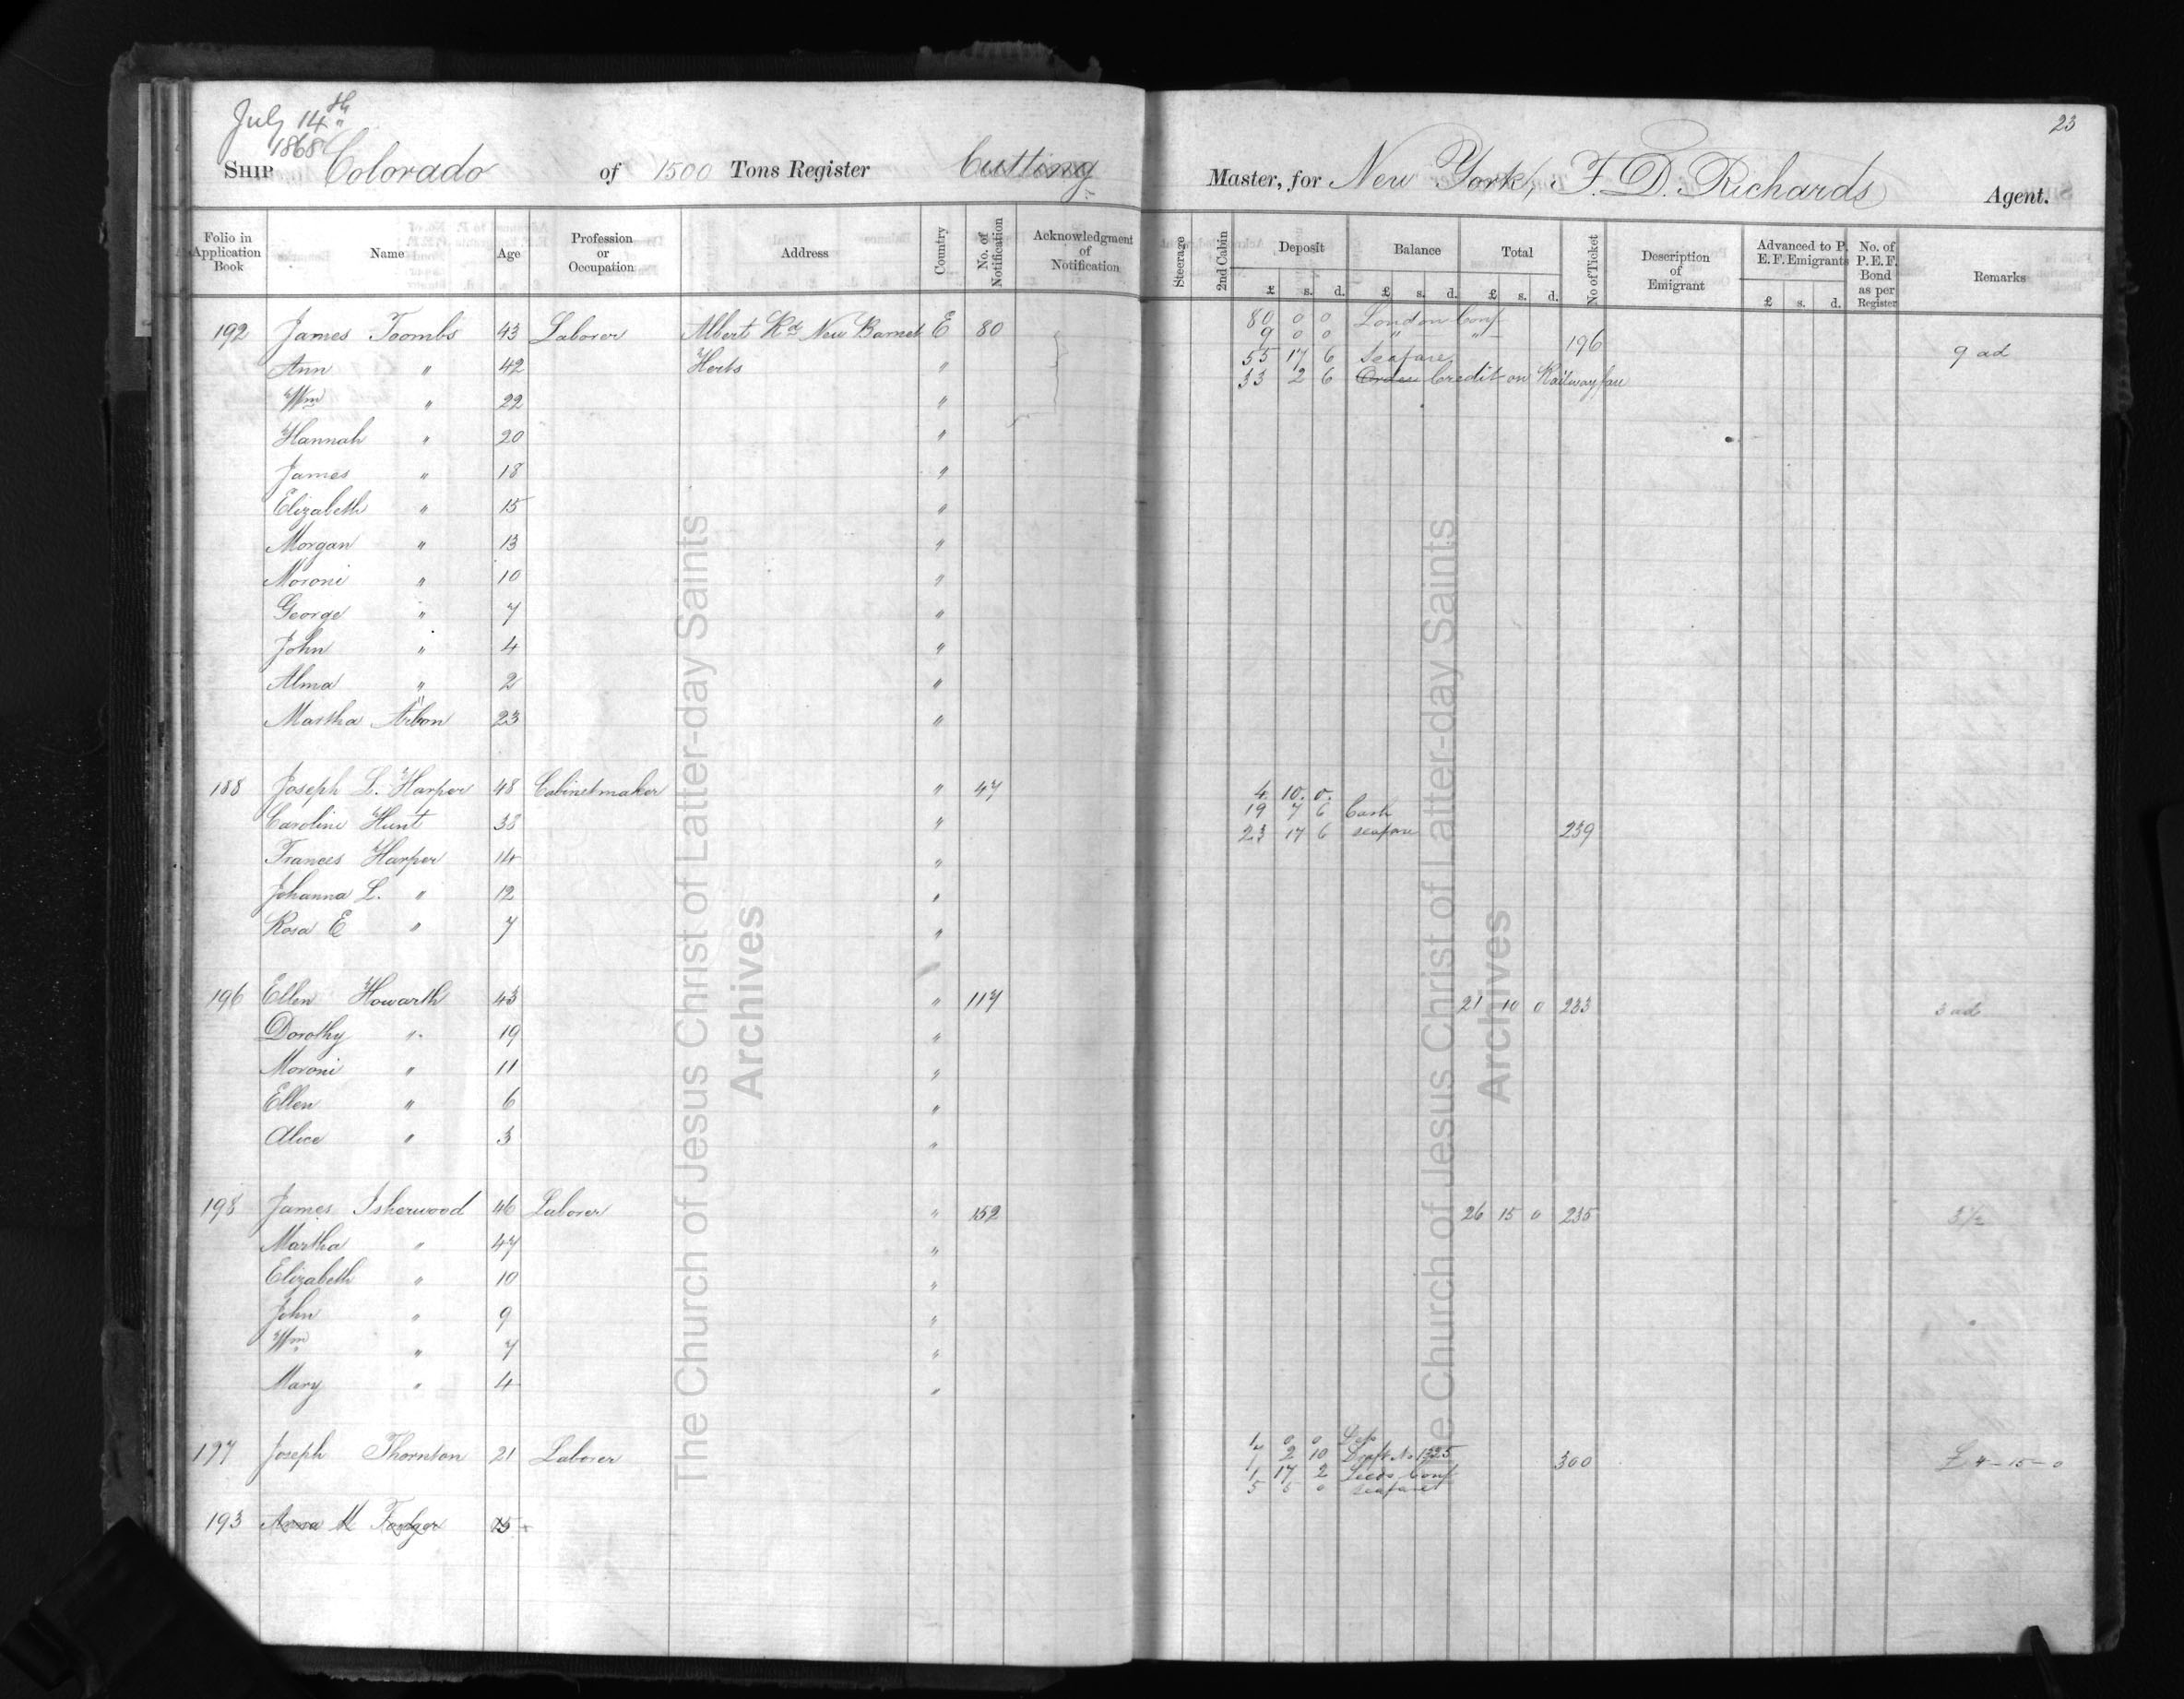 July 14th 1868
23
SHIP Colorado of 1500 Tons Register Cutting Master, for New York, F. D. Richards Agent.
Folio in Application Book | Name | Age | Profession or Occupation | Address | Country | No. of Notification | Acknowledgment of Notification | Steerage | 2nd Cabin | Deposit £ s. d. | Balance £ s. d. | Total £ s. d. | No of Ticket | Description of Emigrant | Advanced to P. E. F. Emigrants £ s. d. | No. of P. E. F. Bond as per Register | Remarks
192 James Toombs 43 Laborer Albert Rd New Barnet E 80 80 0 0 London Conf 196 9 ad
9 0 0 " "
Ann " 42 Herts " 55 17 6 Seafare
33 2 6 Credit on Railway fare
Wm " 22 "
Hannah " 20 "
James " 18 "
Elizabeth " 15 "
Morgan " 13 "
Moroni " 10 "
George " 7 "
John " 4 "
Alma " 2 "
Martha Arbon 23 "
188 Joseph L. Harper 48 Cabinetmaker " 47 4. 10. 0.
19 7 6 Cash
Caroline Hunt 38 " 23 17 6 seafare 239
Frances Harper 14 "
Johanna L. " 12 "
Rosa E " 7 "
196 Ellen Howarth 43 " 117 21 10 0 233 3 ad
Dorothy " 19 "
Moroni " 11 "
Ellen " 6 "
Alice " 3 "
198 James Isherwood 46 Laborer " 152 26 15 0 235 3 1/2
Martha " 47 "
Elizabeth " 10 "
John " 9 "
Wm " 7 "
Mary " 4 "
197 Joseph Thornton 21 Laborer 1 0 0 300 £4-15-0
7 2 10 Draft No 1325
1 17 2 Leeds Conf
5 5 0 seafare
193 Anna M
The Church of Jesus Christ of Latter-day Saints
Archives
The Church of Jesus Christ of Latter-day Saints
Archives